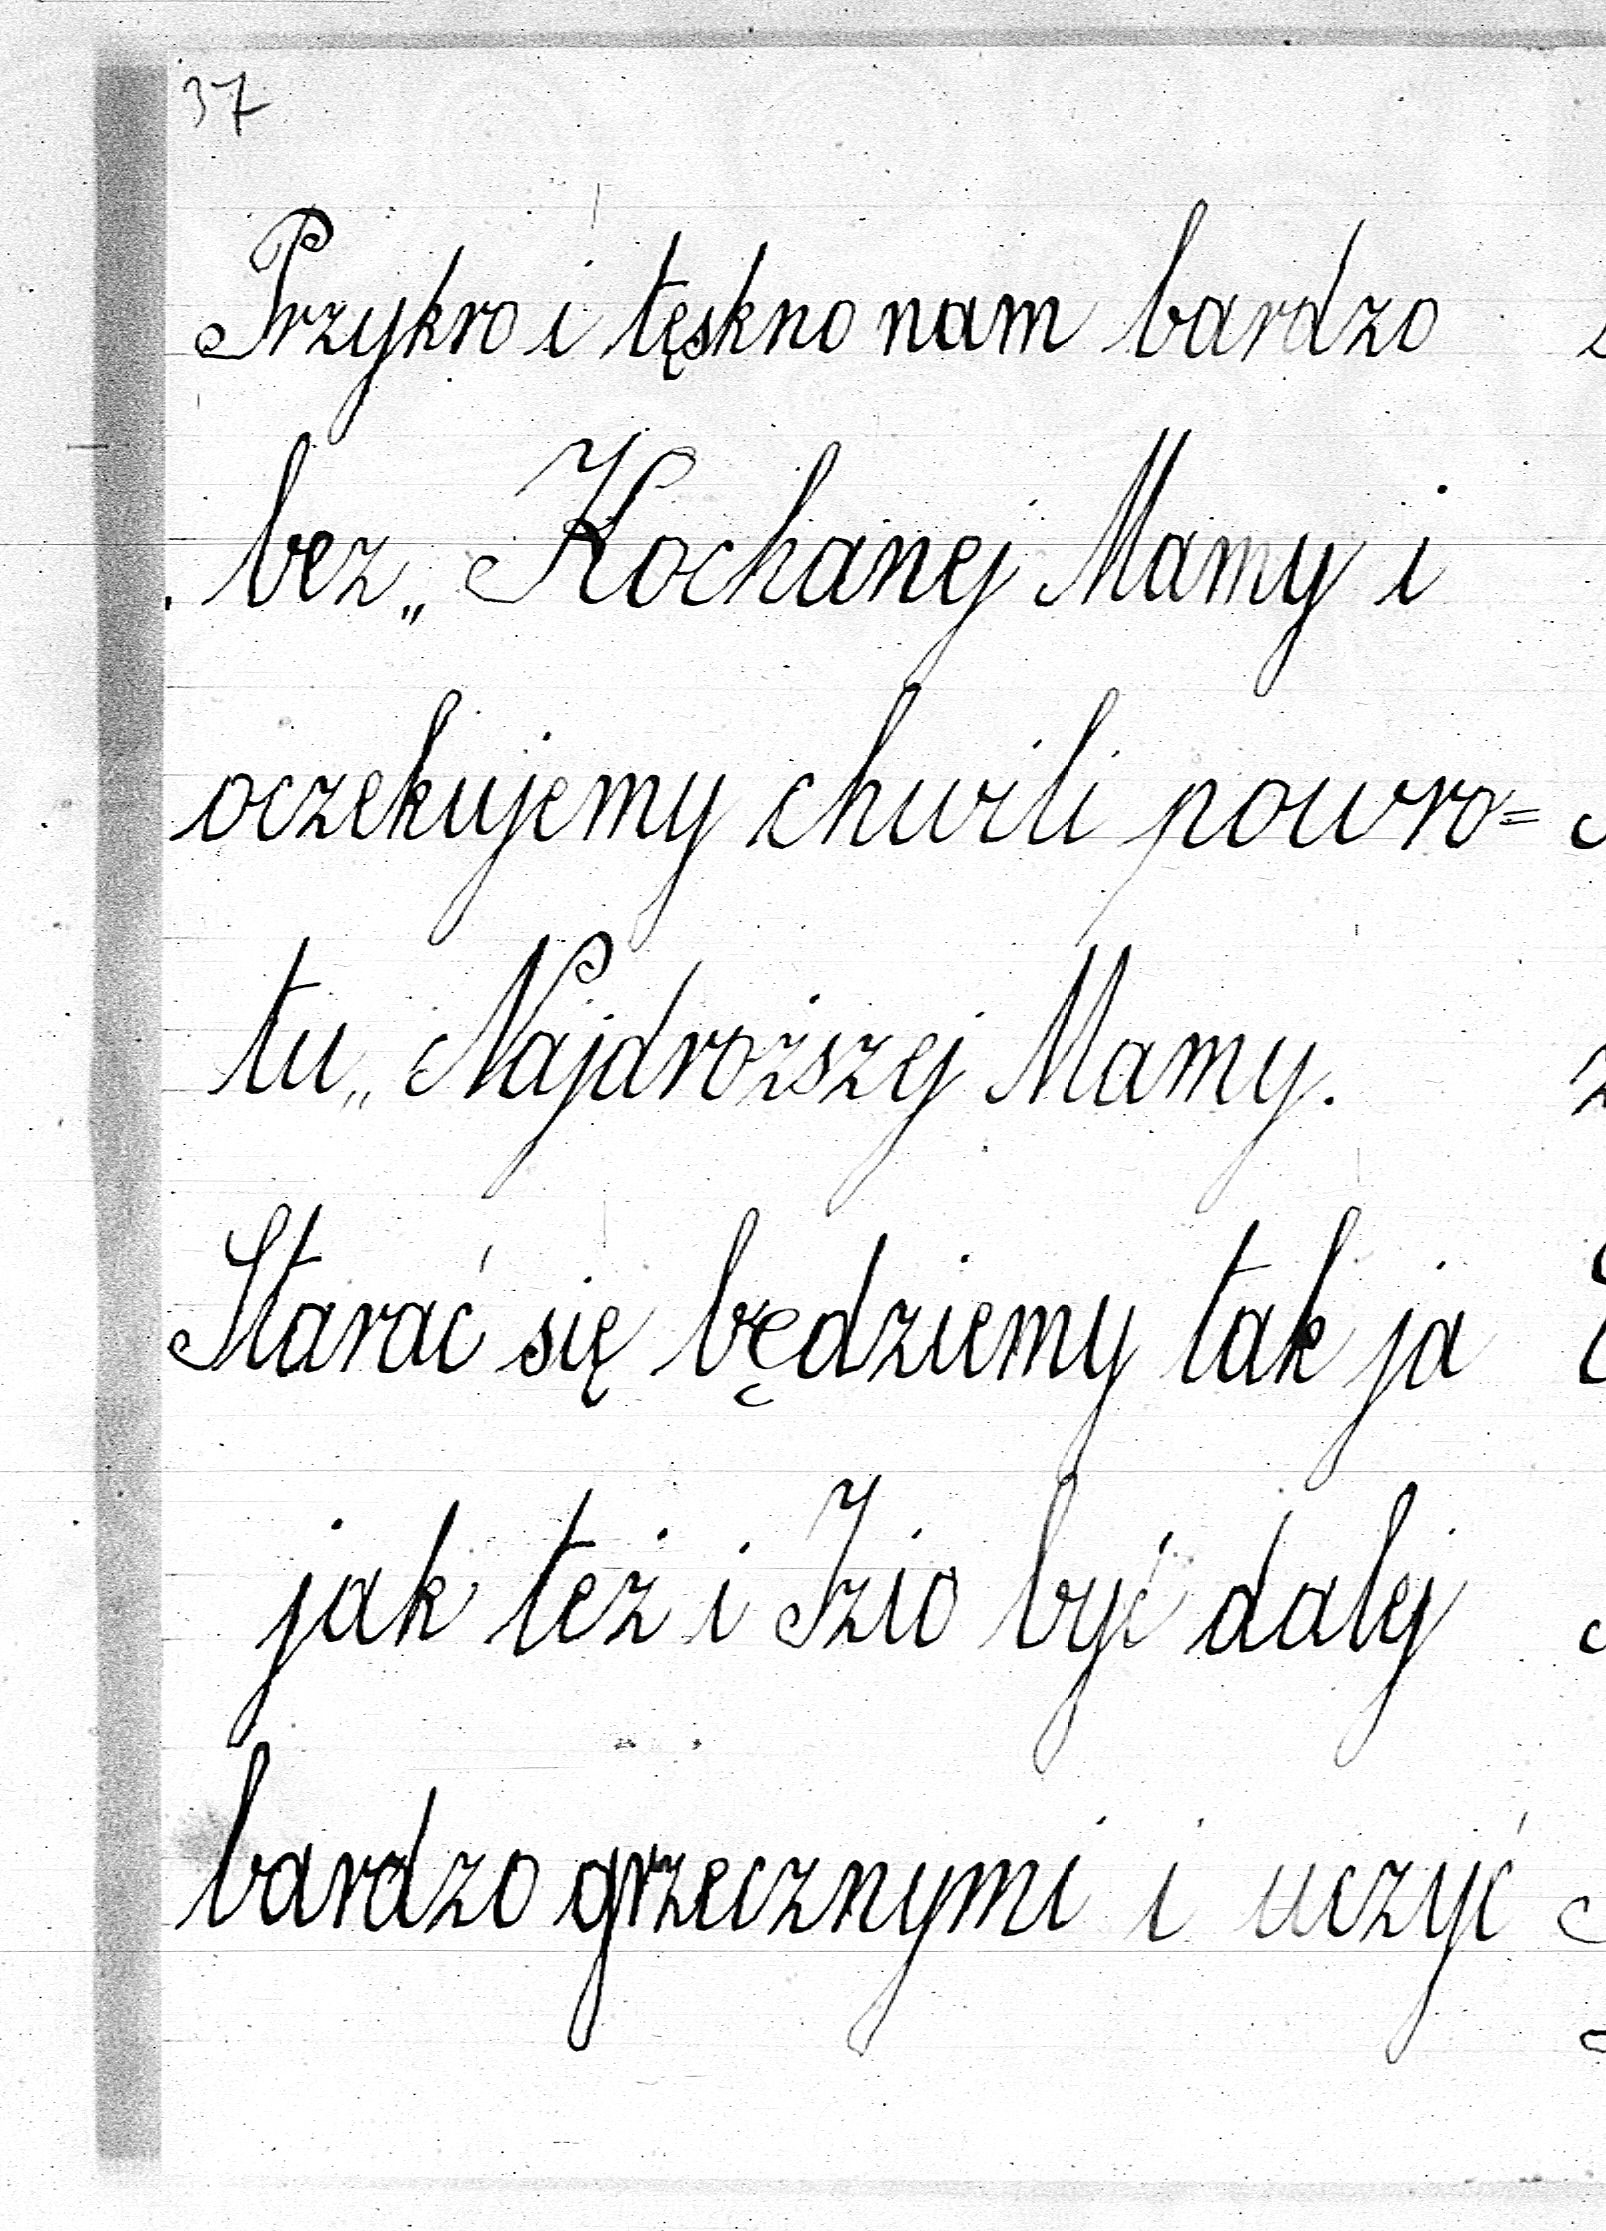 37
Przykro i tęskno nam bardzo
bez„ Kochanej Mamy i
oczekujemy chwili powro=
tu„ Najdroższej Mamy.
Starać się będziemy tak ja
jak też i Izio być dalej
bardzo grzecznymi i uczyć